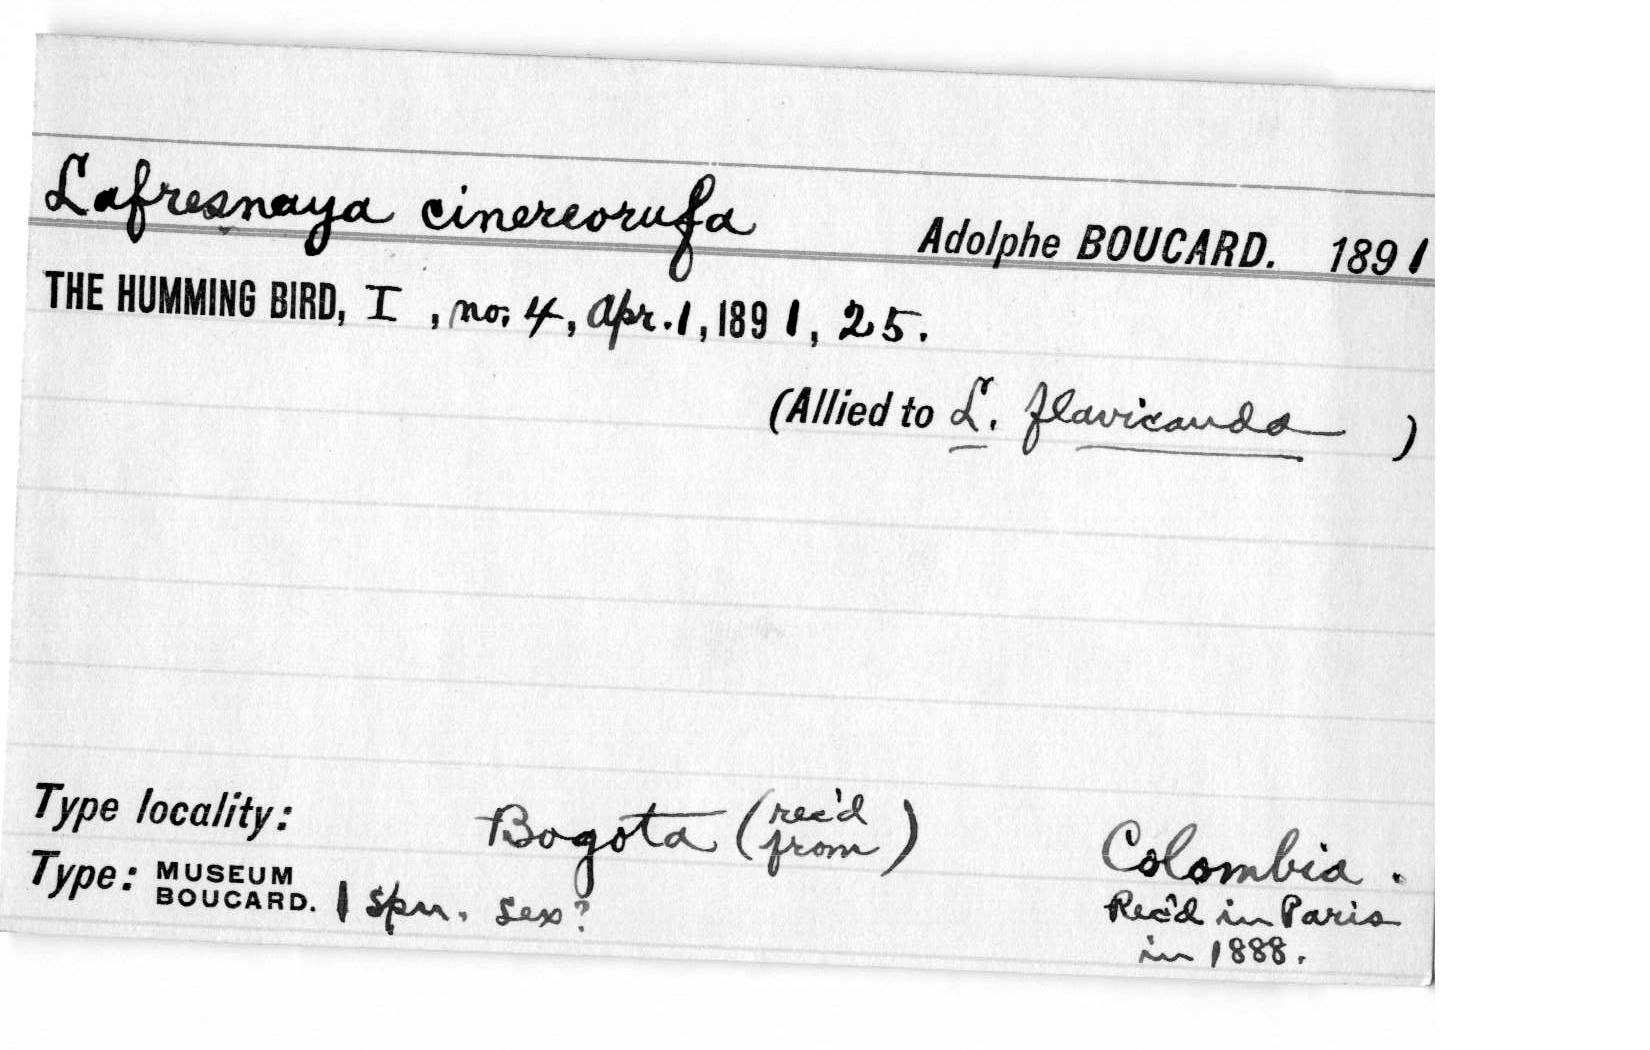 Lafresnaya cinereorufa Adolphe BOUCARD. 1891
THE HUMMING BIRD, I, no. 4, Apr. 1, 1891, 25.
(Allied to L. flavicauda)
Type locality: Bogota (rec'd from) Colombia.
Type: MUSEUM BOUCARD. 1 spm. sex? Rec'd in Paris
in 1888.